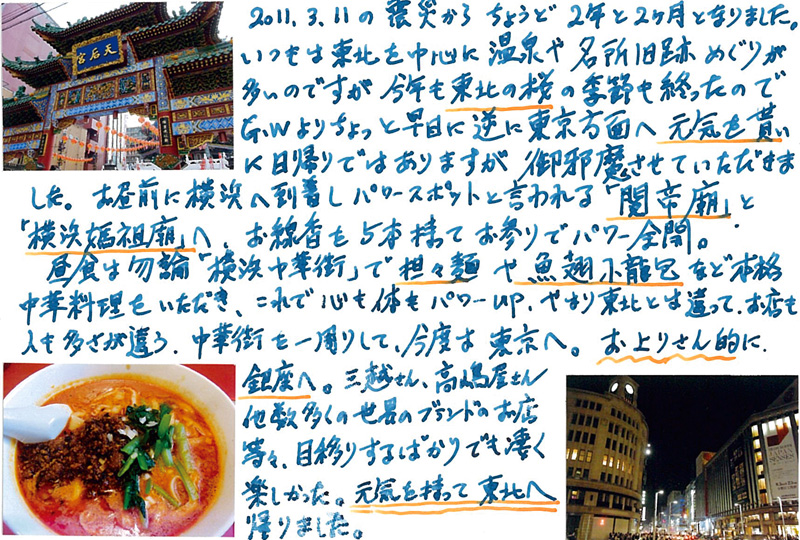 天后宮
2011.3.11の震災からちょうど2年と2ヶ月となりました。
いつもは東北を中心に温泉や名所旧跡めぐりが
多いのですが今年も東北の桜の季節も終ったので
G.Wよりちょっと早目に逆に東京方面へ元気を貰い
に日帰りではありますが御邪魔させていただきま
した。お昼前に横浜へ到着しパワースポットと言われる「関帝廟」と
「横浜媽祖廟」へ、お線香も5本持ってお参りでパワー全開。
昼食は勿論「横浜中華街」で担々麺や魚翅小龍包など本格
中華料理をいただき、これで心も体もパワーUP、やはり東北とは違って、お店も
人も多さが違う、中華街を一周りして、今度は東京へ。おのぼりさん的に、
銀座へ。三越さん、高嶋屋さん
他数多くの世界のブランドのお店
等々、目移りするばかりでも凄く
楽しかった。元気を持って東北へ
帰りました。